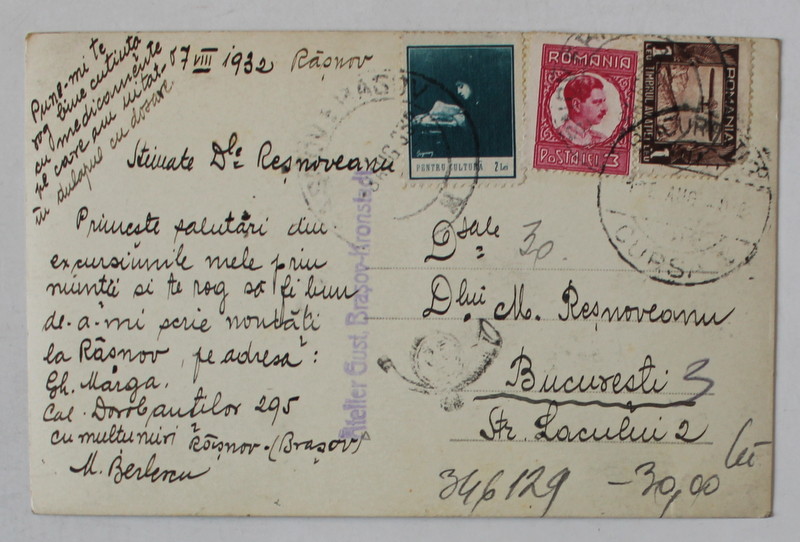 Pune-mi te
rog bine cutiuta
cu medicamente
pe care am uitat-
în dulapul cu dosare
07 VIII 1932 Râșnov
Stimate D-le Reșnoveanu
Primește salutări din
excursiunile mele prin
munții si te rog să fi bun
de-a-mi scrie noutăți
la Râșnov, pe adresa:
Gh. Mârga.
Cal. Dorobanților 295
cu multumiri Râșnov-(Brașov)
M.
Atelier Gust. Brașov-Kronstadt
PENTRU CULTURĂ 2 Lei
ROMANIA
POSTA LEI 3
ROMANIA
1 LEU TIMBRUL AVIATIEI LEU 1
AUG
CURSA
D-sale 30.
D-lui M. Reșnoveanu
București 3
Str. Lacului 2
346129 -30,00 lei